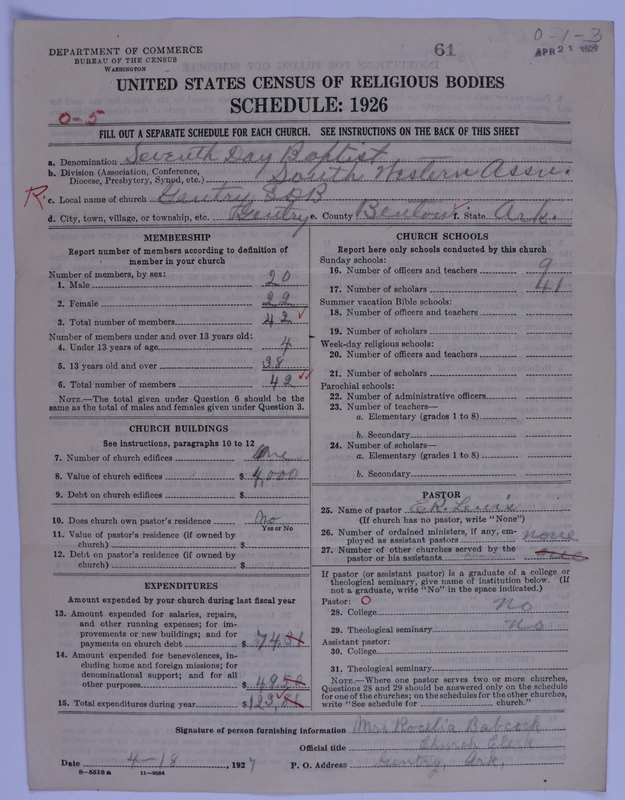 DEPARTMENT OF COMMERCE
BUREAU OF THE CENSUS
WASHINGTON
61
0-1-3
APR 21 1927
UNITED STATES CENSUS OF RELIGIOUS BODIES
SCHEDULE: 1926
0-5
FILL OUT A SEPARATE SCHEDULE FOR EACH CHURCH. SEE INSTRUCTIONS ON THE BACK OF THIS SHEET
a. Denomination Seventh Day Baptist
b. Division (Association, Conference, Diocese, Presbytery, Synod, etc.) South Western Assn.
R. c. Local name of church Gentry SDB
d. City, town, village, or township, etc. Gentry e. County Benton f. State Ark.
MEMBERSHIP
Report number of members according to definition of
member in your church
Number of members, by sex:
1. Male 20
2. Female 22
3. Total number of members 42
Number of members under and over 13 years old:
4. Under 13 years of age 4
5. 13 years old and over 38
6. Total number of members 42
NOTE.—The total given under Question 6 should be
same as the total of males and females given under Question 3.
CHURCH BUILDINGS
See instructions, paragraphs 10 to 12
7. Number of church edifices One
8. Value of church edifices $ 4,000
9. Debt on church edifices $
10. Does church own pastor's residence No
Yes or No
11. Value of pastor's residence (if owned by
church) $
12. Debt on pastor's residence (if owned by
church) $
EXPENDITURES
Amount expended by your church during last fiscal year
13. Amount expended for salaries, repairs,
and other running expenses; for im-
provements or new buildings; and for
payments on church debt $ 74.
14. Amount expended for benevolences, in-
cluding home and foreign missions; for
denominational support; and for all
other purposes $ 49.
15. Total expenditures during year $ 123.
CHURCH SCHOOLS
Report here only schools conducted by this church
Sunday schools:
16. Number of officers and teachers 9
17. Number of scholars 41
Summer vacation Bible schools:
18. Number of officers and teachers
19. Number of scholars
Week-day religious schools:
20. Number of officers and teachers
21. Number of scholars
Parochial schools:
22. Number of administrative officers
23. Number of teachers—
a. Elementary (grades 1 to 8)
b. Secondary
24. Number of scholars—
a. Elementary (grades 1 to 8)
b. Secondary
PASTOR
25. Name of pastor E.R. Lewis
(If church has no pastor, write "None")
26. Number of ordained ministers, if any, em-
ployed as assistant pastors none
27. Number of other churches served by the
pastor or his assistants
If pastor (or assistant pastor) is a graduate of a college or
theological seminary, give name of institution below. (If
not a graduate, write "No" in the space indicated.)
Pastor: O
28. College No
29. Theological seminary No
Assistant pastor:
30. College
31. Theological seminary
NOTE.—Where one pastor serves two or more churches,
Questions 28 and 29 should be answered only on the schedule
for one of the churches; on the schedules for the other churches,
write "See schedule for church."
Signature of person furnishing information Mrs Rocelia Babcock
Official title Church Clerk
Date 4-18, 1927 P. O. Address Gentry, Ark,
8-5518a 11-9024